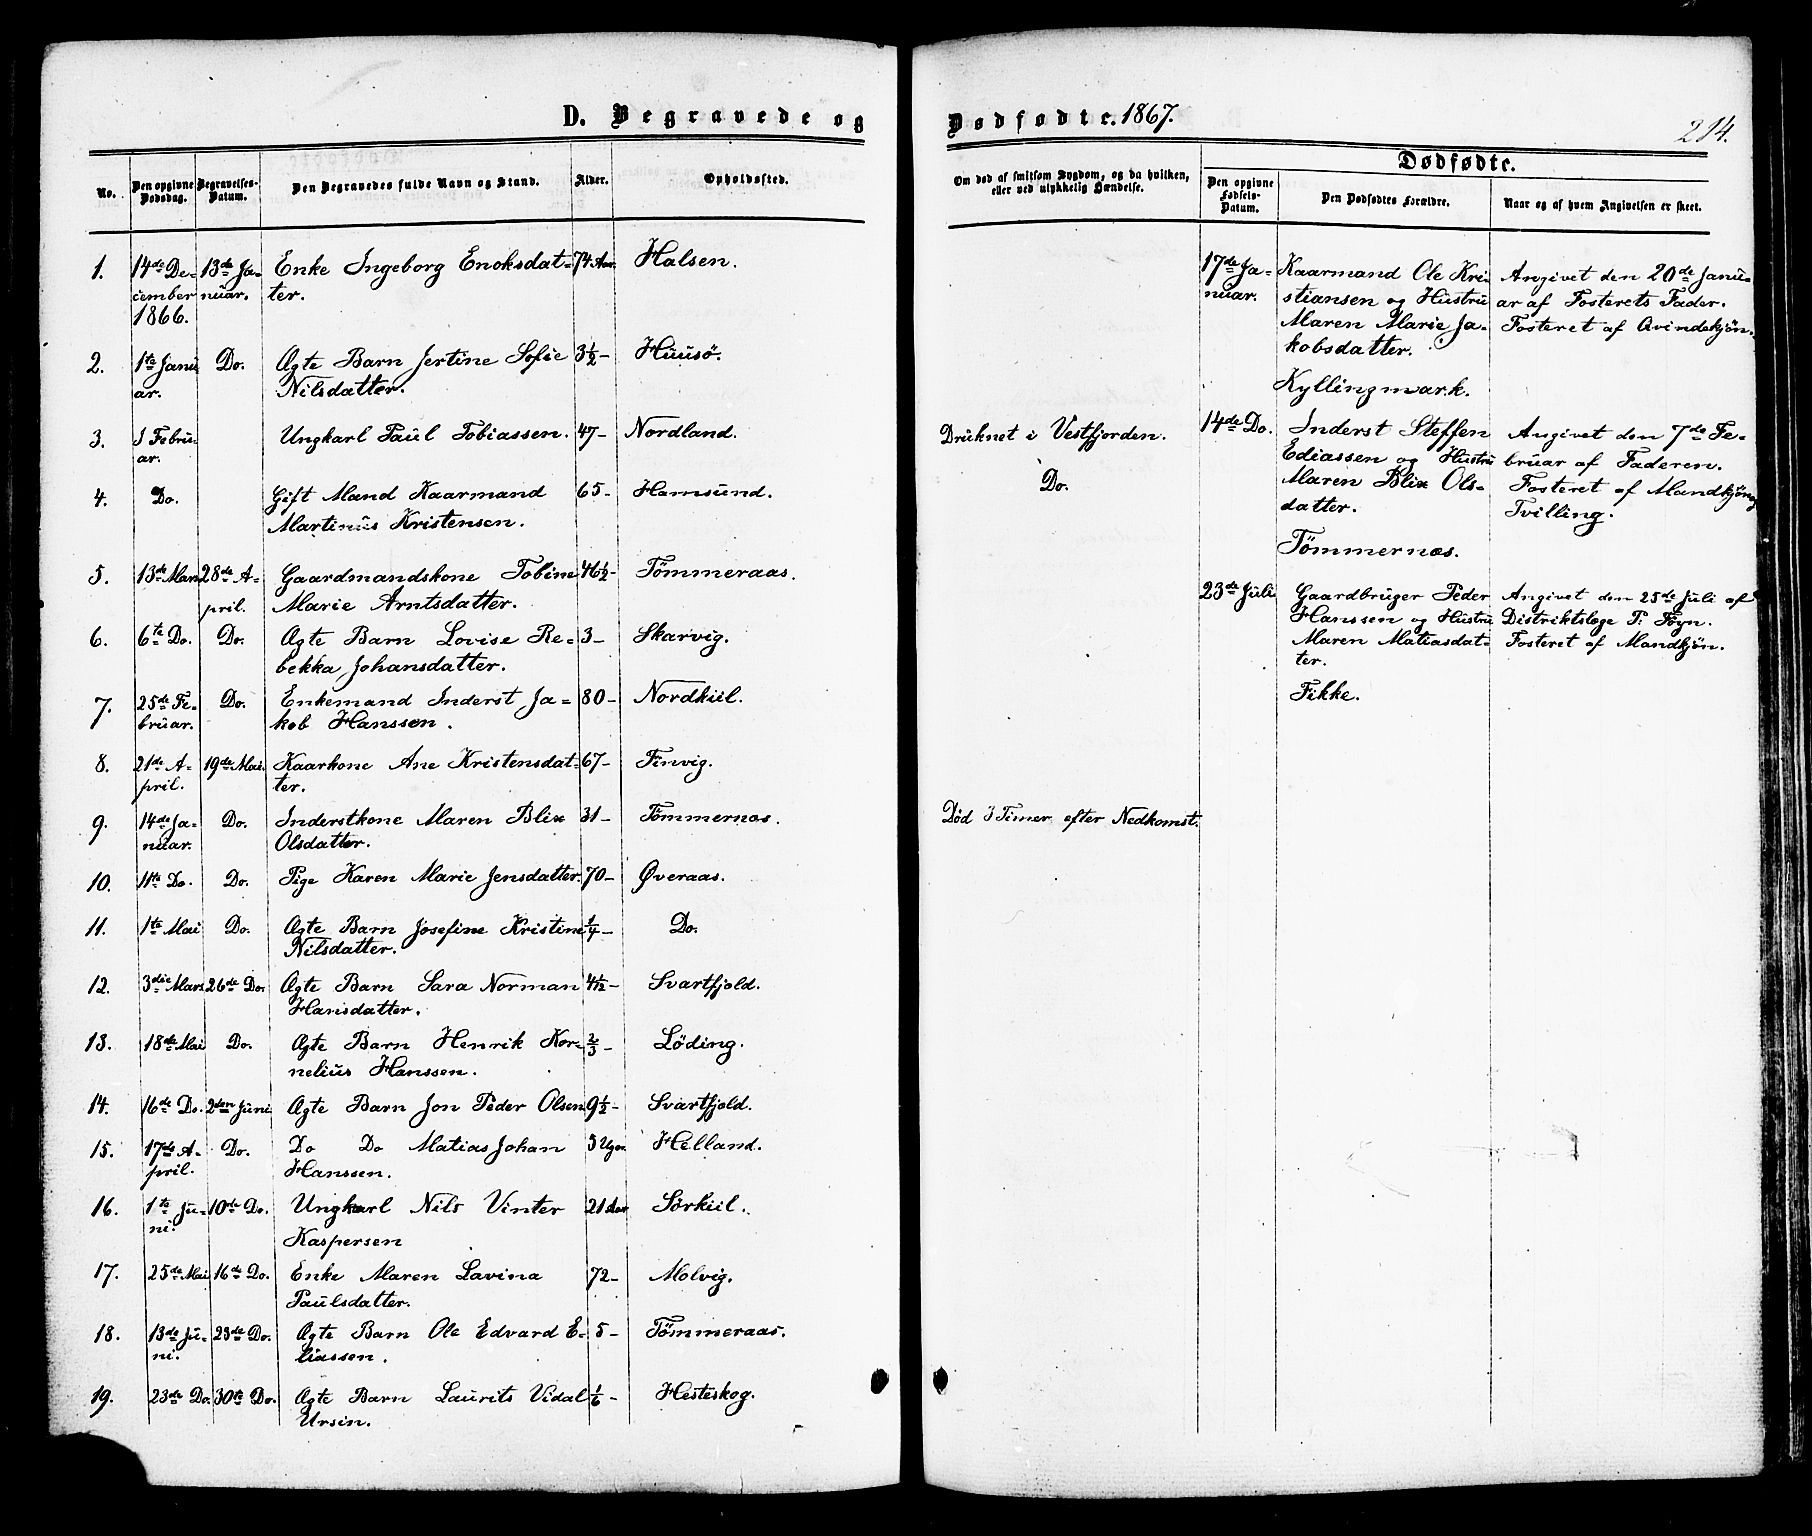 D. Begravede og
No.
Den opgivne Dødsdag.
Begravelses-Datum.
Den Begravedes fulde Navn og Stand.
Alder.
Opholdssted.
1. 14de De- 13de Ja- Enke Ingeborg Enoksdat- 74 Aar. Halsen.
cember nuar. ter.
1866.
2. 1ste Janu Do. Ægte Barn Jertine Sofie 3½ - Huusö.
ar. Nilsdatter.
3. I Febru- Ungkarl Paul Tobiassen. 47 - Nordland.
ar.
4. Do. Gift Mand Kaarmand 65 - Hamsund.
Martinus Kristensen.
5. 13de Mars 28de A- Gaardmandskone Tobine 46½ - Tömmeraas.
pril. Marie Arntsdatter.
6. 6te Do. Do. Ægte Barn Lovise Re- 3 - Skarvig.
bekka Johansdatter.
7. 25de Fe- Do. Enkemand Inderst Ja- 80 - Nordkiil.
bruar. kob Hanssen.
8. 21de A- 19de Mai. Kaarkone Ane Kristensdat- 67 - Finvig.
pril. ter.
9. 14de Ja- Do. Inderstkone Maren Blix 31 - Tömmernæs.
nuar. Olsdatter.
10. 11te Do. Do. Pige Karen Marie Jensdatter. 70 - Øveraas.
11. 1ste Mai Do. Ægte Barn Josefine Kristine ¼ - Do.
Nilsdatter.
12. 3die Mars 26de Do. Ægte Barn Sara Norman 4/12 - Svartfjeld.
Hansdatter.
13. 18de Mai Do. Ægte Barn Henrik Kor- 2/3 - Löding.
nelius Hanssen.
14. 16de Do. 2den Juni Ægte Barn Jon Peder Olsen 9½ - Svartfjeld.
15. 17de A- Do. Do Do Matias Johan 3 Uger. Helland.
pril. Hanssen.
16. 1ste Ju- 10de Do. Ungkarl Nils Vinter 21 Aar Sörkiil.
ni. Kaspersen
17. 25de Mai 16de Do. Enke Maren Lavina 72 - Molvig.
Paulsdatter.
18. 13de Ju- 23de Do. Ægte Barn Ole Edvard E- 5 - Tömmeraas.
ni. liassen.
19. 23de Do. 30te Do. Ægte Barn Laurits Vidal 1/6 - Hesteskog.
Ursin.
Dødfødte. 1867.
214.
Om død af smitsom Sygdom, og da hvilken,
eller ved ulykkelig Hændelse.
Dødfødte.
Den opgivne Fødsels-Datum.
Den Dødfødtes Forældre.
Naar og af hvem Angivelsen er skeet.
17de Ja- Kaarmand Ole Kri- Angivet den 20de Janu-
nuar. stiansen og Hustru ar af Fosterets Fader.
Maren Marie Ja- Fosteret af Qvindekjön.
kobsdatter.
Kyllingmark.
Druknet i Vestfjorden. 14de Do. Inderst Steffen Angivet den 7de Fe-
Ediassen og Hustru bruar af Faderen.
Do. Maren Blix Ols- Fosteret af Mandkjön,
datter. Tvilling.
Tömmernæs.
23de Juli Gaardbruger Peder Angivet den 25de Juli af
Hanssen og Hustru Distriktslæge P. Föyn.
Maren Matiasdat- Fosteret af Mandkjön.
ter.
Fikke.
Död 3 Timer efter Nedkomst.